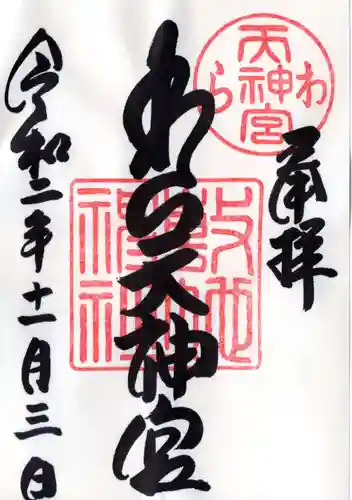 奉拝
わら天神宮
わら天神宮
敷地神社
令和二年十一月三日